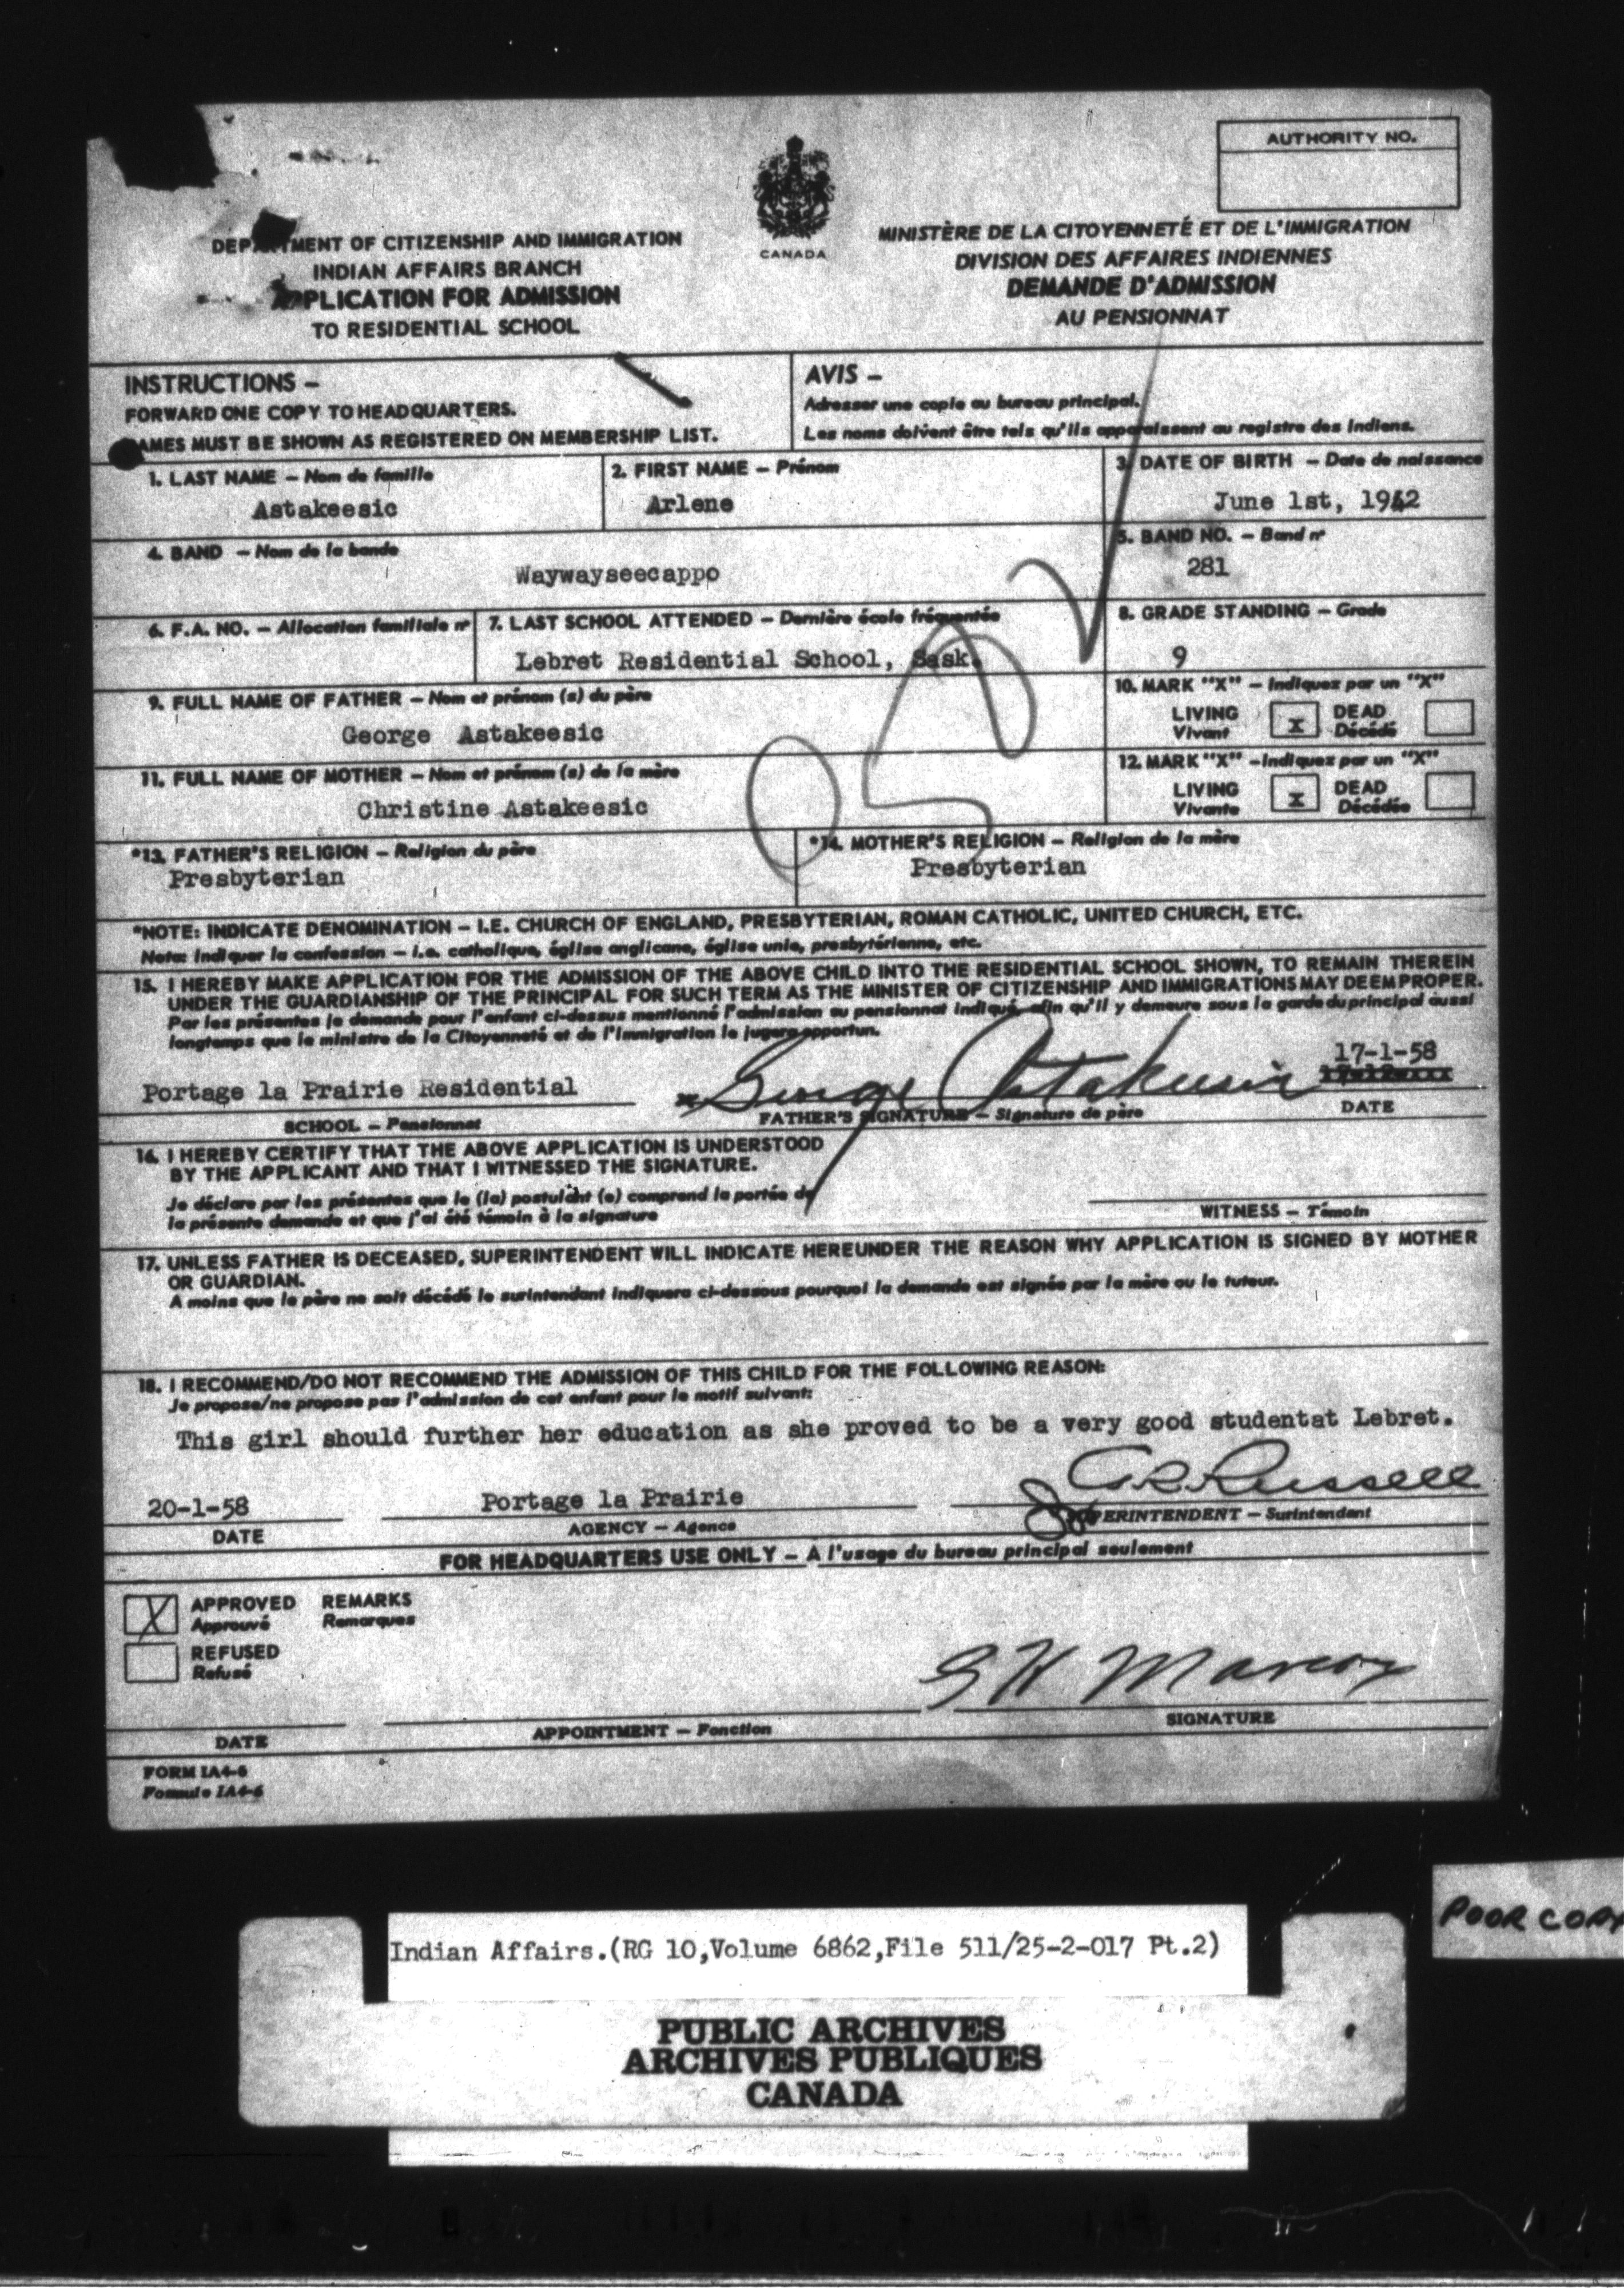 AUTHORITY NO.
CANADA
DEPARTMENT OF CITIZENSHIP AND IMMIGRATION
INDIAN AFFAIRS BRANCH
APPLICATION FOR ADMISSION
TO RESIDENTIAL SCHOOL
MINISTÈRE DE LA CITOYENNETÉ ET DE L'IMMIGRATION
DIVISION DES AFFAIRES INDIENNES
DEMANDE D'ADMISSION
AU PENSIONNAT
INSTRUCTIONS –
FORWARD ONE COPY TO HEADQUARTERS.
NAMES MUST BE SHOWN AS REGISTERED ON MEMBERSHIP LIST.
AVIS –
Adresser une copie au bureau principal.
Les noms doivent être tels qu'ils apparaissent au registre des Indiens.
1. LAST NAME – Nom de famille
Astakeesic
2. FIRST NAME – Prénom
Arlene
3. DATE OF BIRTH – Date de naissance
June 1st, 1942
4. BAND – Nom de la bande
Waywayseecappo
5. BAND NO. – Band nº
281
6. F.A. NO. – Allocation familiale nº
7. LAST SCHOOL ATTENDED – Dernière école fréquentée
Lebret Residential School, Sask.
8. GRADE STANDING – Grade
9
9. FULL NAME OF FATHER – Nom et prénom (s) du père
George Astakeesic
10. MARK "X" – Indiquez par un "X"
LIVING
Vivant
x
DEAD
Décédé
11. FULL NAME OF MOTHER – Nom et prénom (s) de la mère
Christine Astakeesic
12. MARK "X" – Indiquez par un "X"
LIVING
Vivante
x
DEAD
Décédée
*13. FATHER'S RELIGION – Religion du père
Presbyterian
*14. MOTHER'S RELIGION – Religion de la mère
Presbyterian
*NOTE: INDICATE DENOMINATION – I.E. CHURCH OF ENGLAND, PRESBYTERIAN, ROMAN CATHOLIC, UNITED CHURCH, ETC.
Nota: Indiquer la confession – i.e. catholique, église anglicane, église unie, presbytérienne, etc.
15. I HEREBY MAKE APPLICATION FOR THE ADMISSION OF THE ABOVE CHILD INTO THE RESIDENTIAL SCHOOL SHOWN, TO REMAIN THEREIN
UNDER THE GUARDIANSHIP OF THE PRINCIPAL FOR SUCH TERM AS THE MINISTER OF CITIZENSHIP AND IMMIGRATIONS MAY DEEM PROPER.
Par les présentes je demande pour l'enfant ci-dessus mentionné l'admission au pensionnat indiqué, afin qu'il y demeure sous la garde du principal aussi
longtemps que le ministre de la Citoyenneté et de l'Immigration le jugera opportun.
Portage la Prairie Residential
SCHOOL – Pensionnat
George Astakeesic
FATHER'S SIGNATURE – Signature de père
17-1-58
DATE
16. I HEREBY CERTIFY THAT THE ABOVE APPLICATION IS UNDERSTOOD
BY THE APPLICANT AND THAT I WITNESSED THE SIGNATURE.
Je déclare par les présentes que le (la) postulant (e) comprend la portée de
la présente demande et que j'ai été témoin à la signature
WITNESS – Témoin
17. UNLESS FATHER IS DECEASED, SUPERINTENDENT WILL INDICATE HEREUNDER THE REASON WHY APPLICATION IS SIGNED BY MOTHER
OR GUARDIAN.
A moins que le père ne soit décédé le surintendant indiquera ci-dessous pourquoi la demande est signée par la mère ou le tuteur.
18. I RECOMMEND/DO NOT RECOMMEND THE ADMISSION OF THIS CHILD FOR THE FOLLOWING REASON:
Je propose/ne propose pas l'admission de cet enfant pour le motif suivant:
This girl should further her education as she proved to be a very good studentat Lebret.
20-1-58
DATE
Portage la Prairie
AGENCY – Agence
Russell
SUPERINTENDENT – Surintendant
FOR HEADQUARTERS USE ONLY – A l'usage du bureau principal seulement
X
APPROVED
Approuvé
REMARKS
Remarques
REFUSED
Refusé
DATE
APPOINTMENT – Fonction
SIGNATURE
FORM IA4-6
Formule IA4-6
POOR COPY
Indian Affairs.(RG 10,Volume 6862,File 511/25-2-017 Pt.2)
PUBLIC ARCHIVES
ARCHIVES PUBLIQUES
CANADA